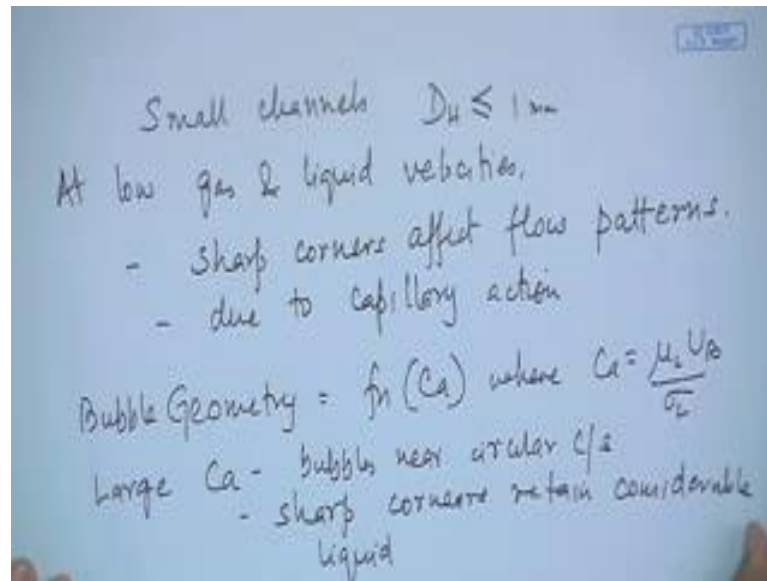 Small channels D_H ≤ 1 mm
At low gas & liquid velocities.
- sharp corners affect flow patterns.
- due to capillary action
Bubble Geometry = fn (Ca) where Ca = μ_L U_B / σ_L
Large Ca - bubbles near circular c/s
- sharp corners retain considerable
liquid